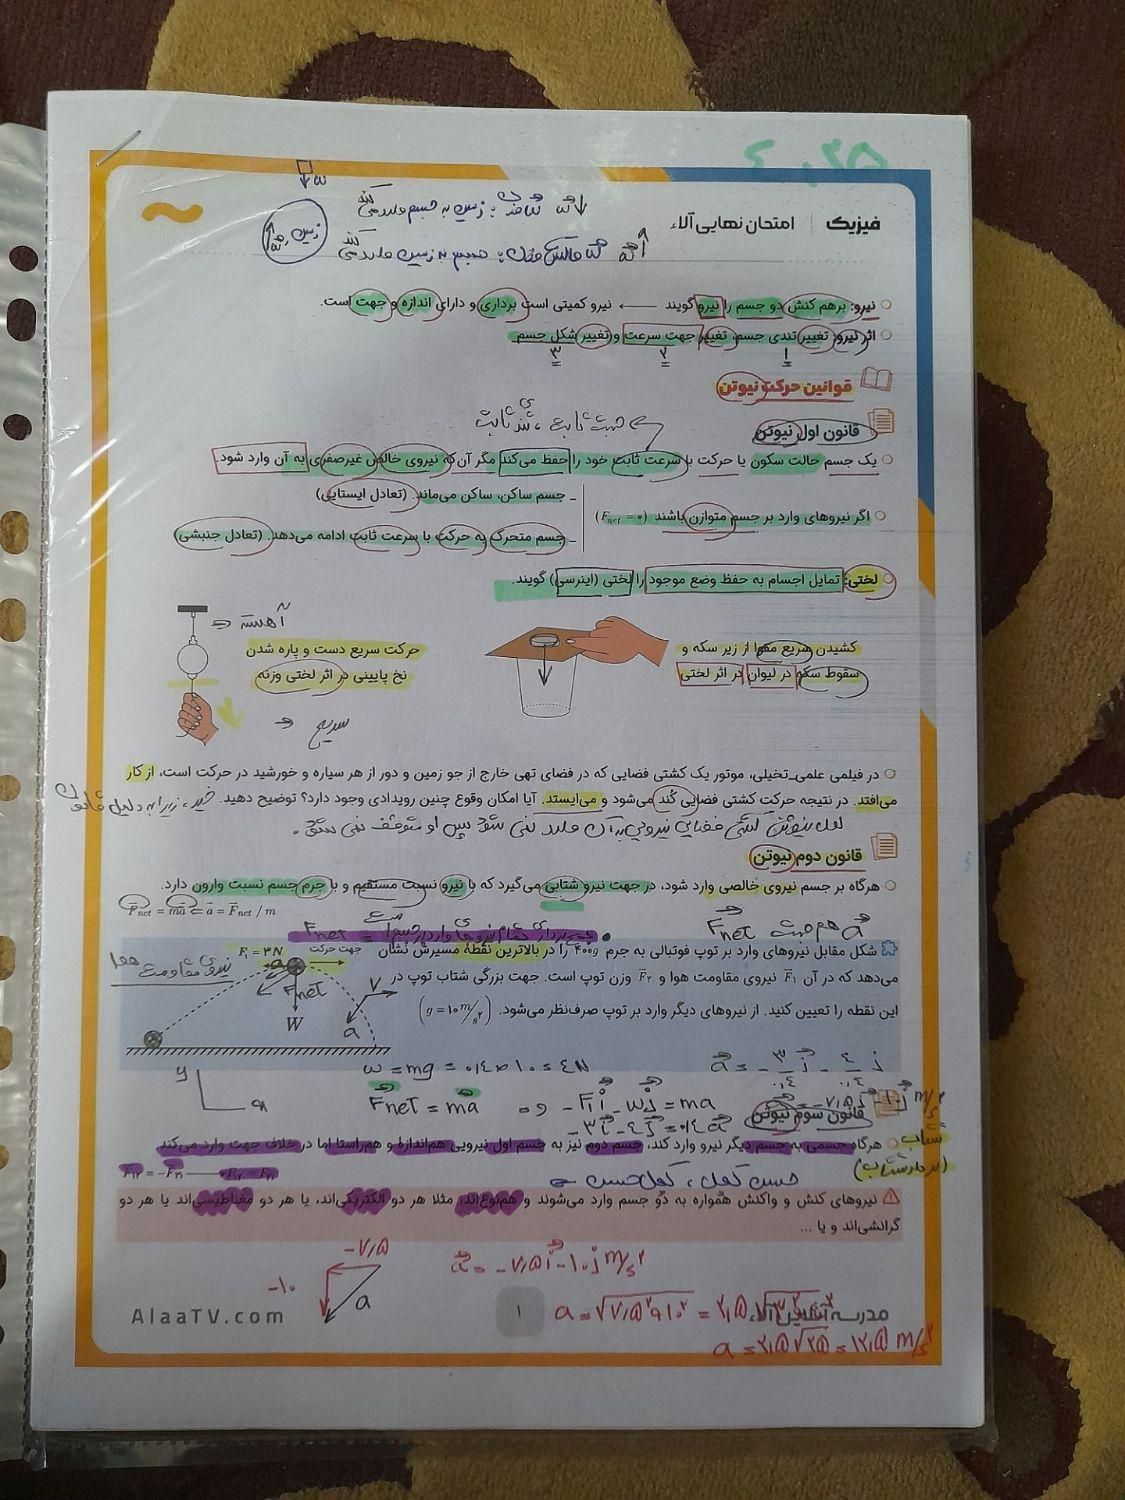 ۴۰,۲۵
فیزیک | امتحان نهایی آلاء
W
زمین
نیرو: برهم کنش دو جسم را نیرو گویند ⟵ نیرو کمیتی است برداری و دارای اندازه و جهت است.
اثر نیرو: تغییر تندی جسم، تغییر جهت سرعت و تغییر شکل جسم
۱ ۲ ۳
قوانین حرکت نیوتن
جهت ثابت، تندی ثابت
قانون اول نیوتن
یک جسم حالت سکون یا حرکت با سرعت ثابت خود را حفظ می‌کند مگر آن‌که نیروی خالص غیرصفری به آن وارد شود.
اگر نیروهای وارد بر جسم متوازن باشند (F_net = ۰)
_ جسم ساکن، ساکن می‌ماند. (تعادل ایستایی)
_ جسم متحرک به حرکت با سرعت ثابت ادامه می‌دهد. (تعادل جنبشی)
لختی: تمایل اجسام به حفظ وضع موجود را لختی (اینرسی) گویند.
کشیدن سریع مقوا از زیر سکه و
سقوط سکه در لیوان در اثر لختی
آهسته ⇒
حرکت سریع دست و پاره شدن
نخ پایینی در اثر لختی وزنه
سریع ⇒
در فیلمی علمی_تخیلی، موتور یک کشتی فضایی که در فضای تهی خارج از جو زمین و دور از هر سیاره و خورشید در حرکت است، از کار
می‌افتد. در نتیجه حرکت کشتی فضایی کُند می‌شود و می‌ایستد. آیا امکان وقوع چنین رویدادی وجود دارد؟ توضیح دهید. خیر، زیرا به دلیل قانون
اول نیوتن کشتی فضایی نیرویی به آن وارد نمی شود پس او متوقف نمی شود.
قانون دوم نیوتن
هرگاه بر جسم نیروی خالصی وارد شود، در جهت نیرو شتابی می‌گیرد که با نیرو نسبت مستقیم و با جرم جسم نسبت وارون دارد.
F_net = ma ⇐ a = F_net / m
a هم جهت F_net
شکل مقابل نیروهای وارد بر توپ فوتبالی به جرم ۴۰۰g را در بالاترین نقطهٔ مسیرش نشان
می‌دهد که در آن F۱ نیروی مقاومت هوا و F۲ وزن توپ است. جهت بزرگی شتاب توپ در
این نقطه را تعیین کنید. از نیروهای دیگر وارد بر توپ صرف‌نظر می‌شود. (g = ۱۰ m/s²)
F۱ = ۳N
جهت حرکت
نیروی مقاومت هوا
Fnet
W
V
a
w = mg = ۰/۴ × ۱۰ = ۴N
a = -۳/۰,۴ i - ۴/۰,۴ j
y
Fnet = ma ⇒ -F۱i - Wj = ma
-۳i - ۴j = ۰/۴a
قانون سوم نیوتن
شتاب
(بردار شتاب)
هرگاه جسمی به جسم دیگر نیرو وارد کند، جسم دوم نیز به جسم اول نیرویی هم‌اندازهٔ و هم‌راستا اما در خلاف جهت وارد می‌کند
F۱۲ = -F۲۱ ⟶ F۱۲ = F۲۱
نیروهای کنش و واکنش همواره به دو جسم وارد می‌شوند و هم‌نوع‌اند، مثلا هر دو الکتریکی‌اند، یا هر دو مغناطیسی‌اند یا هر دو
گرانشی‌اند و یا ...
-۷٫۵
-۱۰
a
a = -۷٫۵i - ۱۰j m/s²
AlaaTV.com
۱
مدرسه آنلاین آلاء
a = ۲٫۵√۲۵ = ۱۲٫۵ m/s²